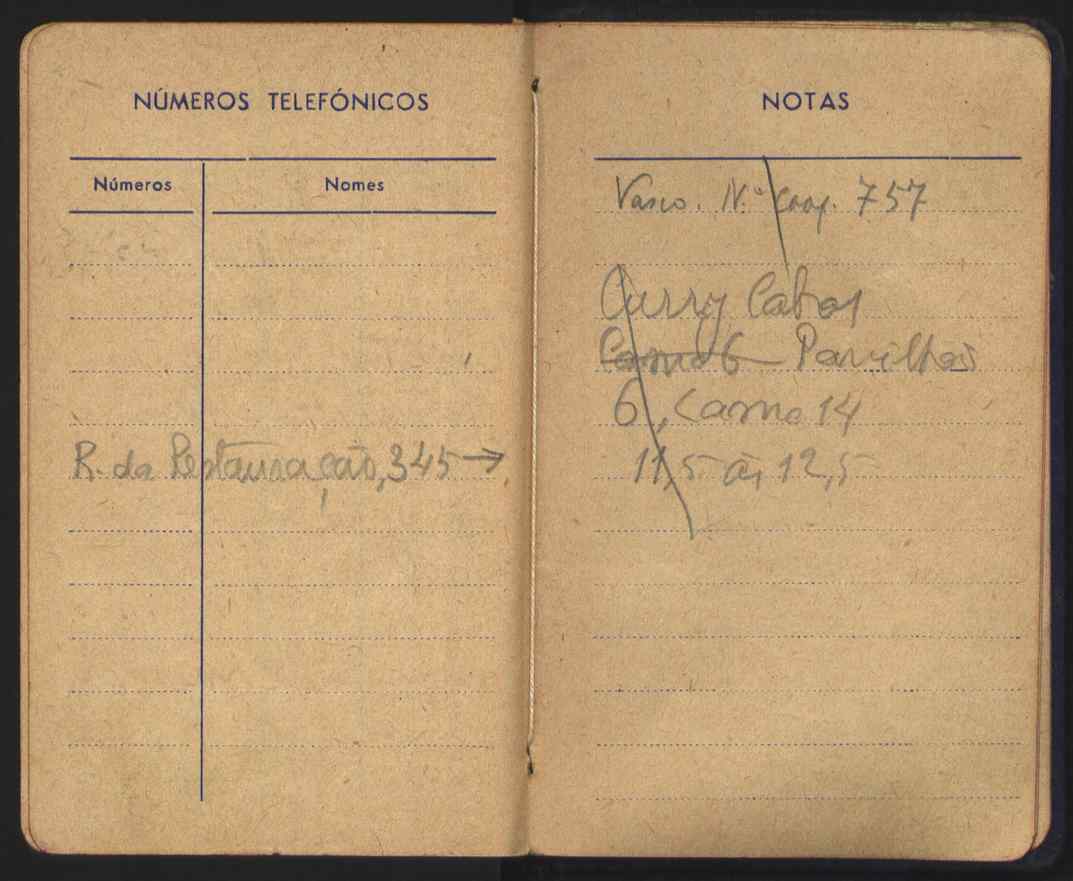 NÚMEROS TELEFÓNICOS
Números Nomes
R. da Restauração, 345 →
NOTAS
Vasco. N.º Coop. 757
Curry Cabral
Cama 6 Pavilhão
6, Cama 14
11,5 às 12,5